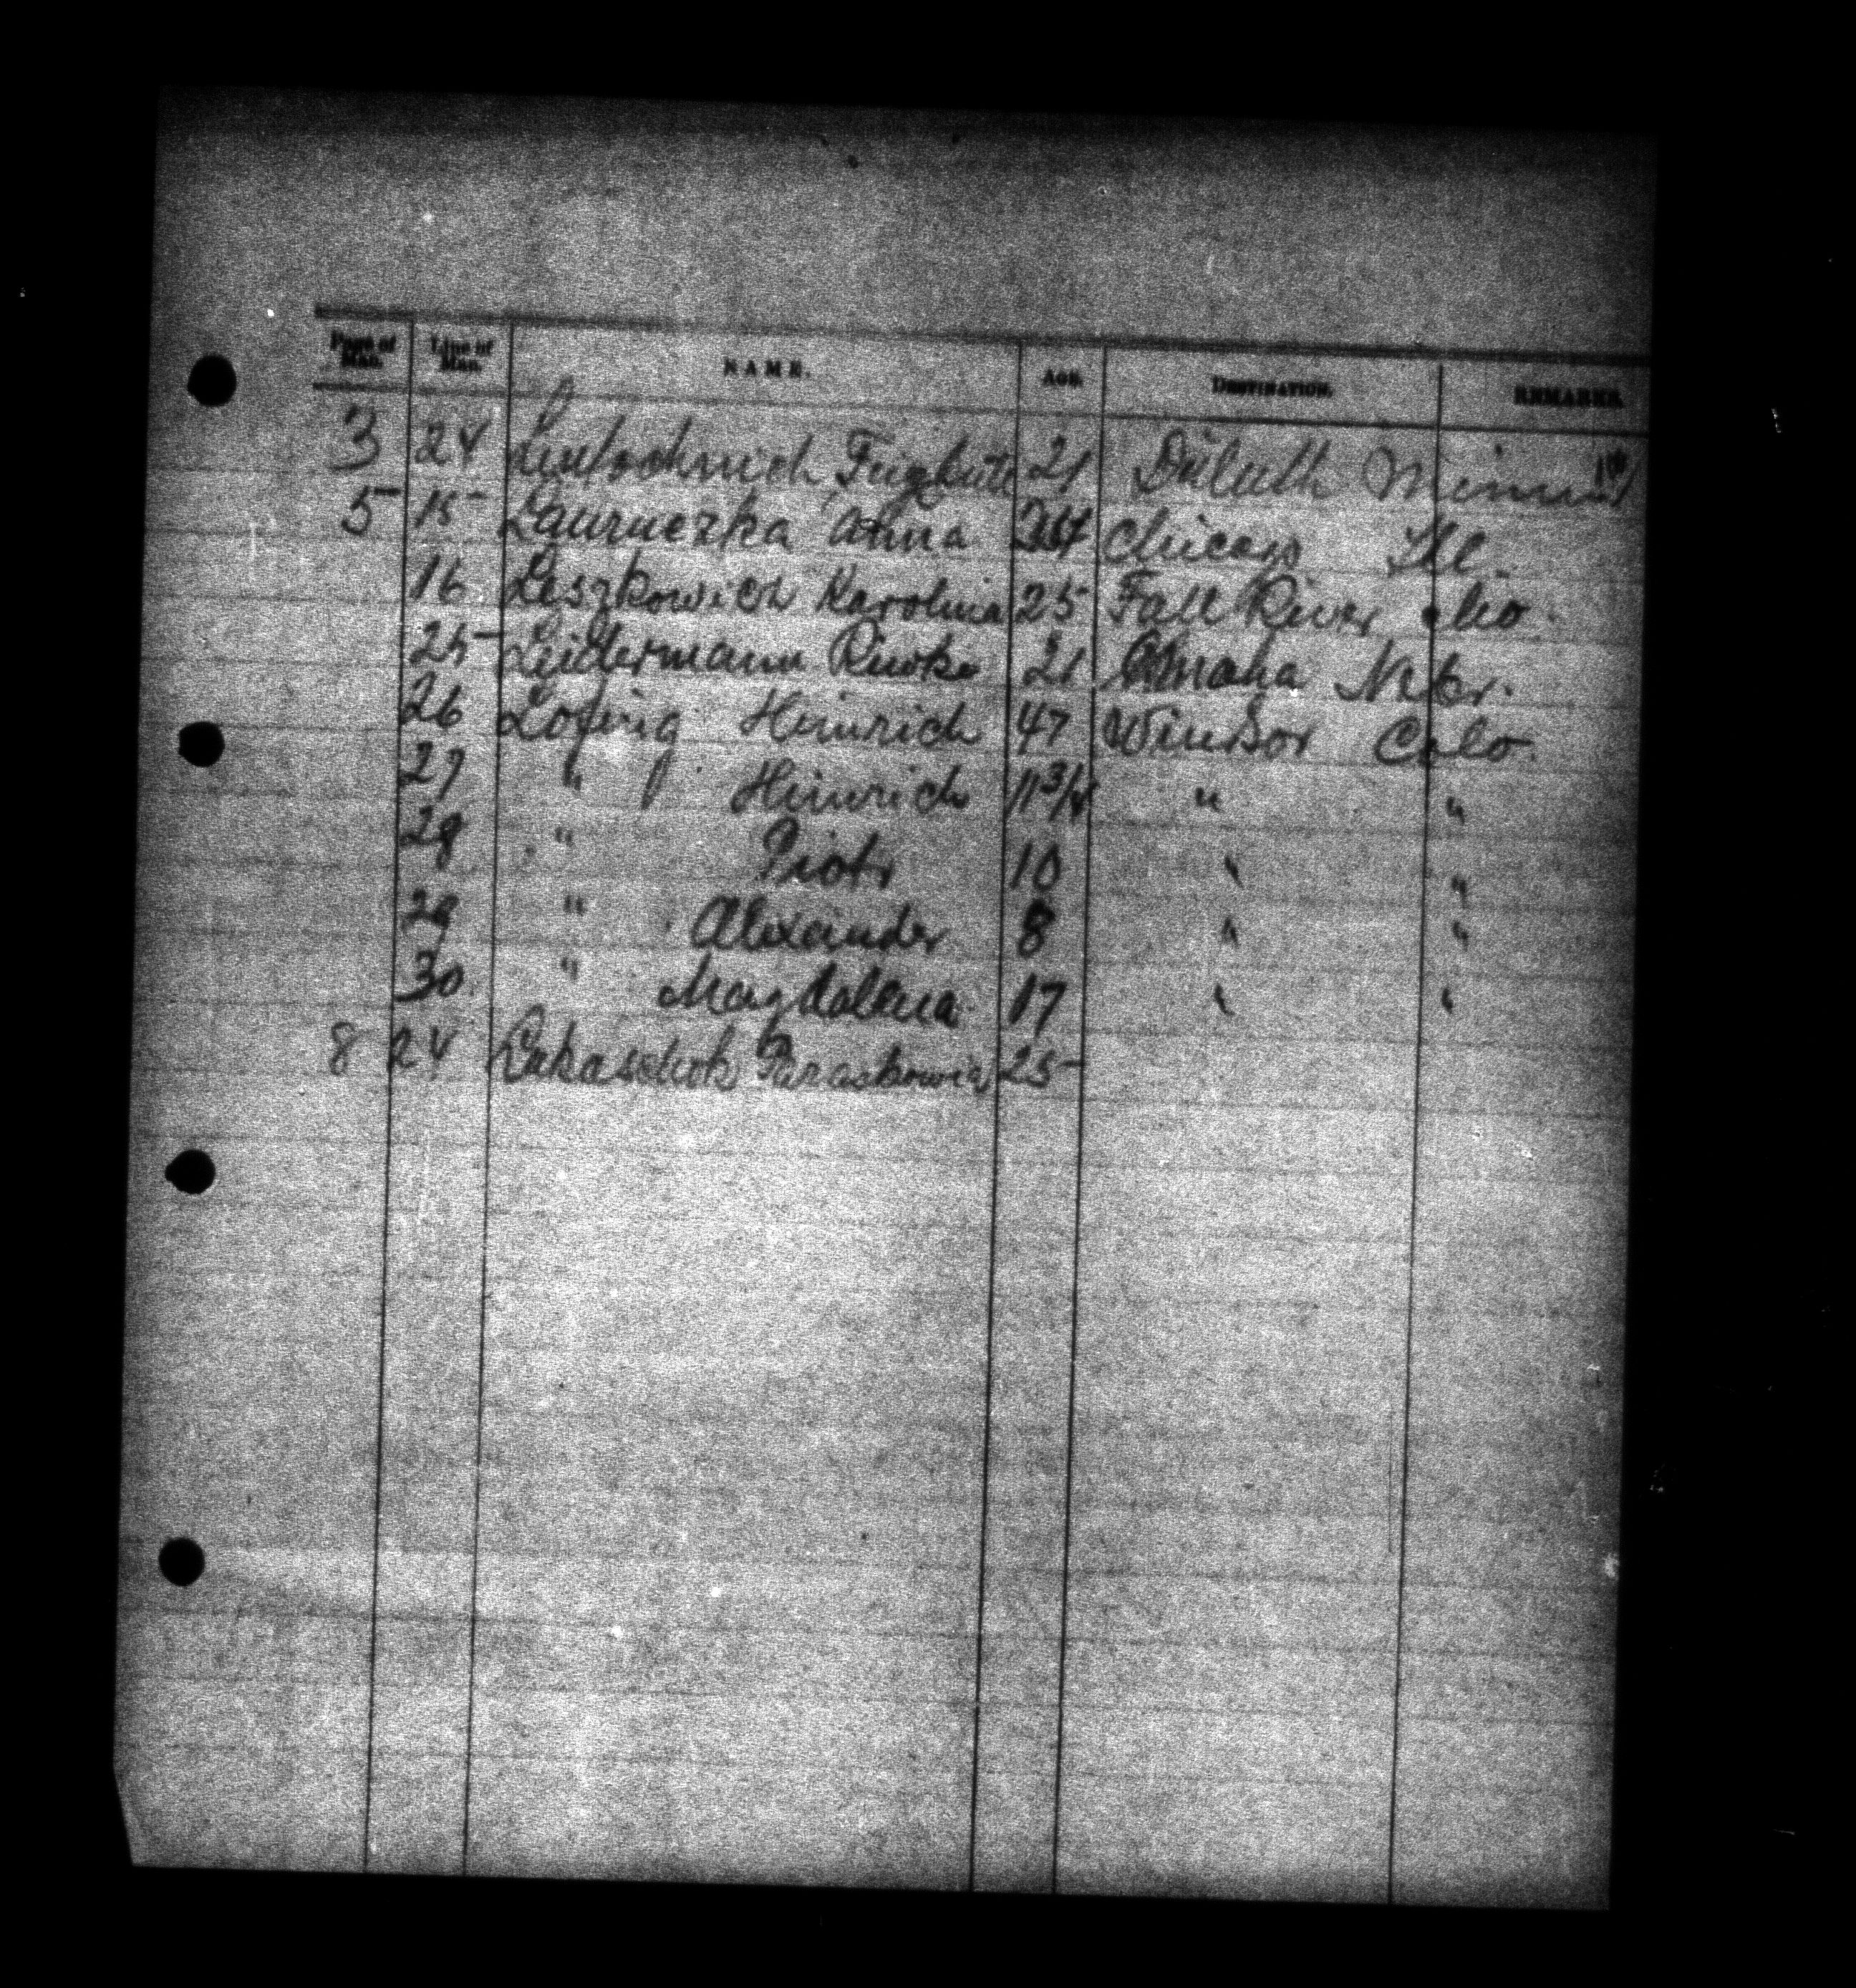 Page of Man. Line of Man. NAME. AGE. DESTINATION. REMARKS.
3 24 21 Duluth Minn
5 15 Anna Chicago Ill.
16 Leszkowich Karolina 25 Fall River Mo.
25 Leidermann Riwke 21 Omaha Nebr.
26 Heinrich 47 Windsor Colo.
27 " Heinrich 11 3/4 " "
28 " Piotr 10 " "
29 " Alexander 8 " "
30 " Magdalena 17 " "
8 24 Paraskowia 25